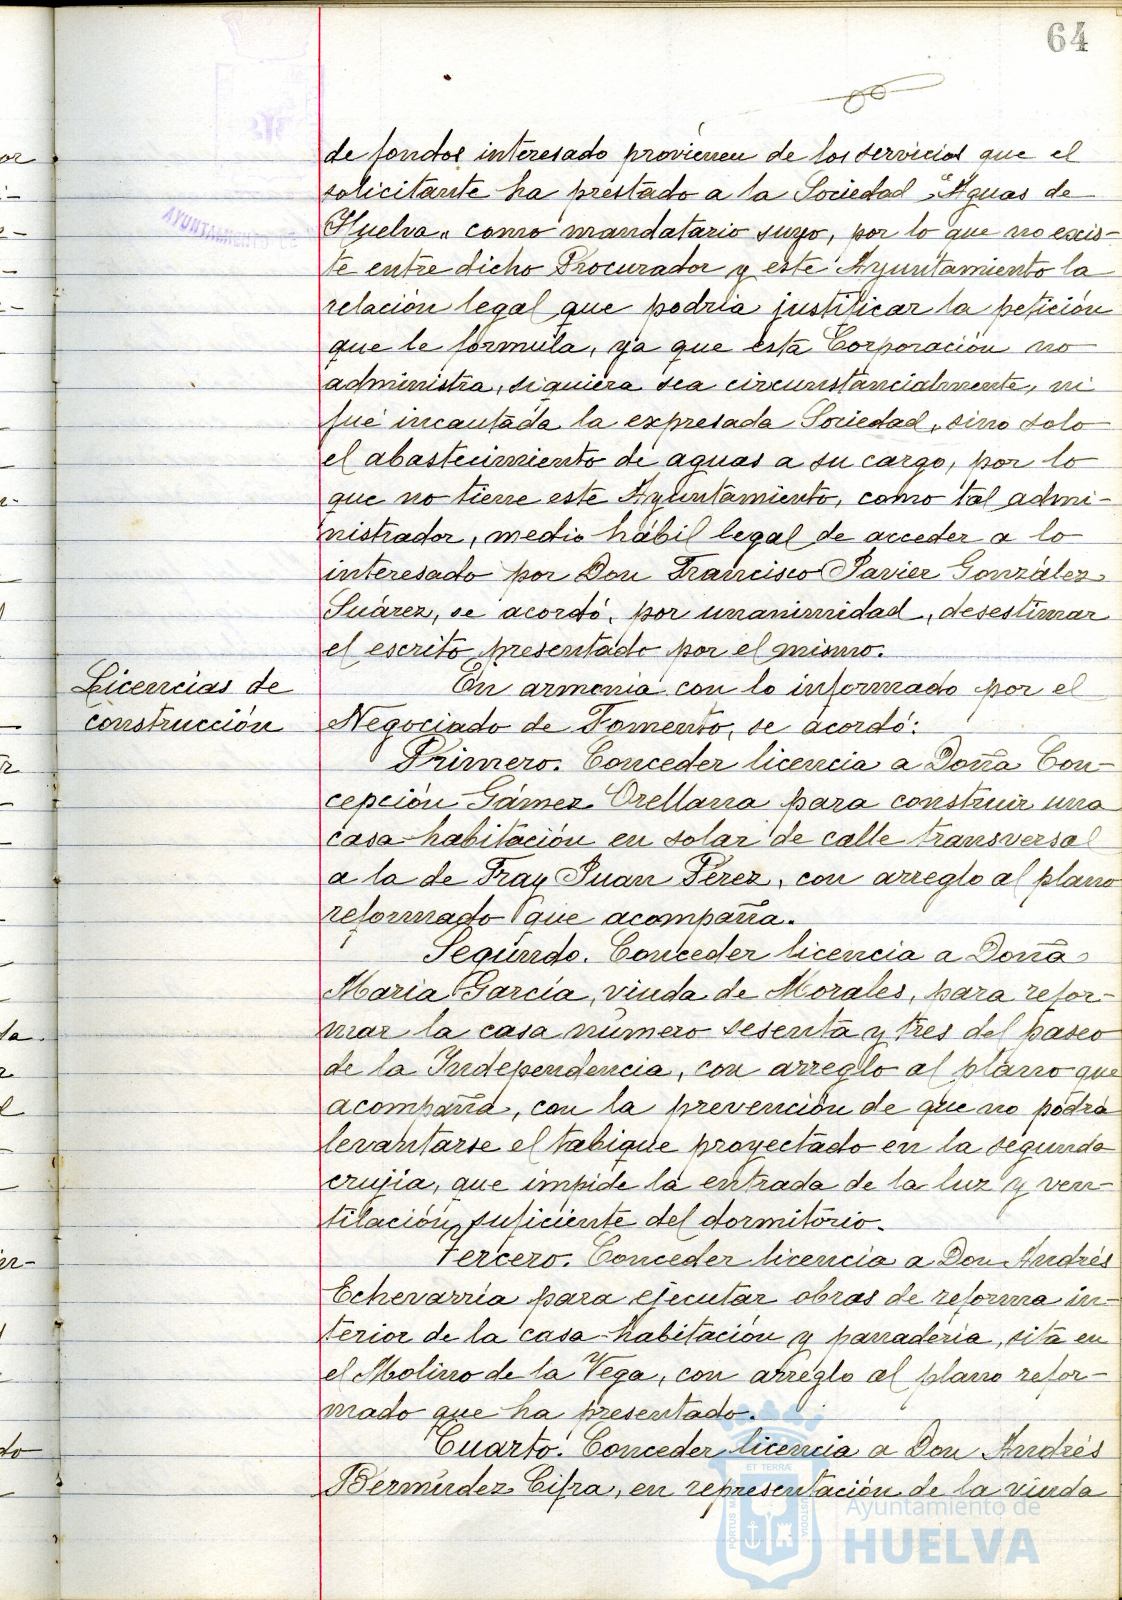 64
de fondos interesado provienen de los servicios que el
solicitante ha prestado a la Sociedad "Aguas de
Huelva" como mandatario suyo, por lo que no exis-
te entre dicho Procurador y este Ayuntamiento la
relación legal que podría justificar la petición
que le formula, ya que esta Corporación no
administra, siquiera sea circunstancialmente, ni
fué incautada la expresada Sociedad, sino solo
el abastecimiento de aguas a su cargo, por lo
que no tiene este Ayuntamiento, como tal admi-
nistrador, medio hábil legal de acceder a lo
interesado por Don Francisco Javier González
Suárez, se acordó, por unanimidad, desestimar
el escrito presentado por el mismo.
Licencias de
construcción
En armonía con lo informado por el
Negociado de Fomento, se acordó:
Primero. Conceder licencia a Doña Con-
cepción Gámez Orellana para construir una
casa-habitación en solar de calle transversal
a la de Fray Juan Pérez, con arreglo al plano
reformado que acompaña.
Segundo. Conceder licencia a Doña
María García, viuda de Morales, para refor-
mar la casa número sesenta y tres del paseo
de la Independencia, con arreglo al plano que
acompaña, con la prevención de que no podrá
levantarse el tabique proyectado en la segunda
crujia, que impide la entrada de la luz y ven-
tilación suficiente del dormitorio.
Tercero. Conceder licencia a Don Andrés
Echevarría para ejecutar obras de reforma in-
terior de la casa-habitación y panadería, sita en
el Molino de la Vega, con arreglo al plano refor-
mado que ha presentado.
Cuarto. Conceder licencia a Don Andrés
Bermúdez Cifra, en representación de la viuda
Ayuntamiento de
HUELVA